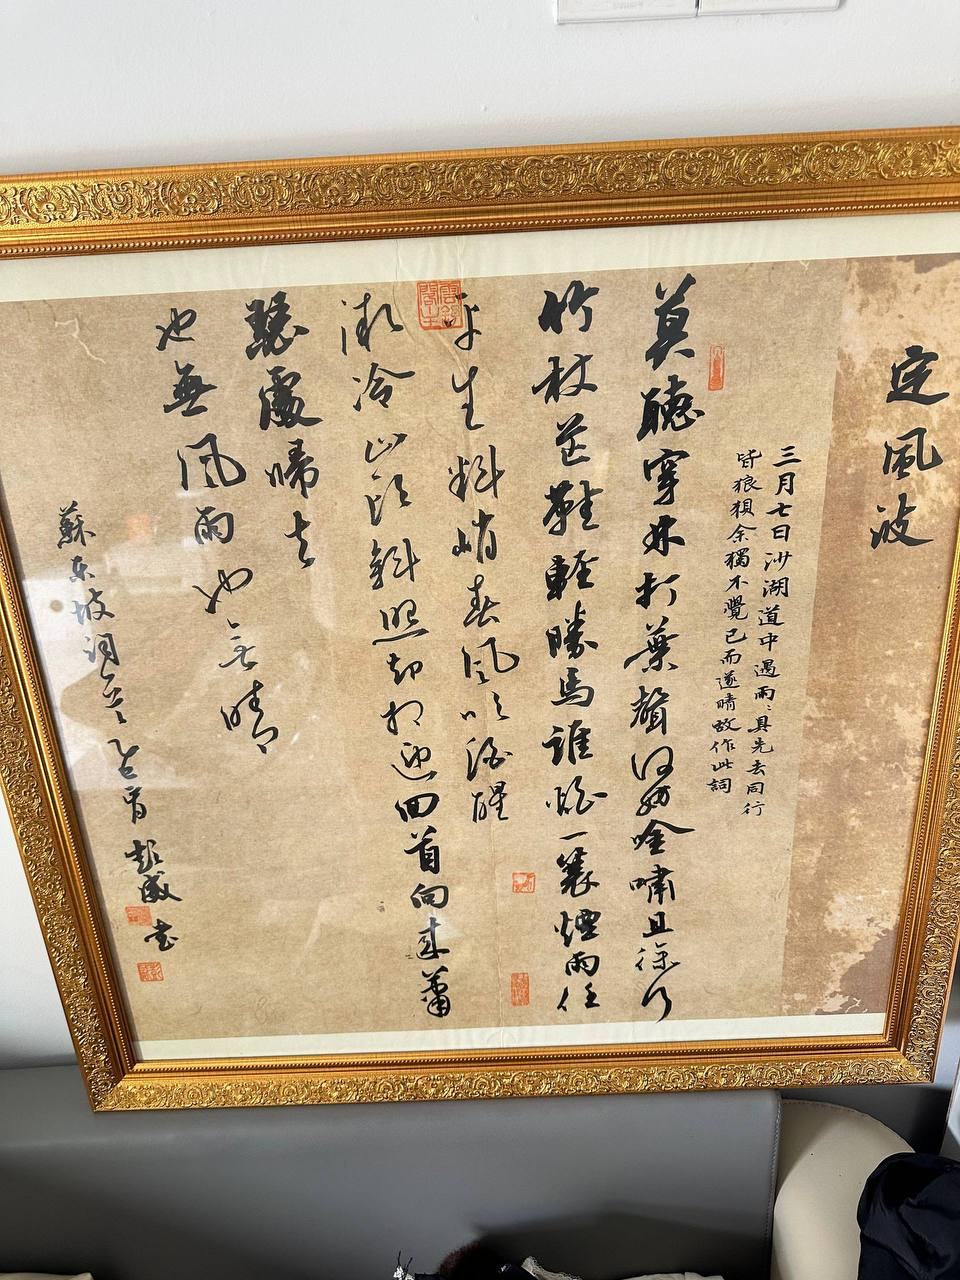 定風波
三月七日沙湖道中遇雨〻具先去同行
皆狼狽余獨不覺已而遂晴故作此詞
莫聽穿林打葉聲何妨吟嘯且徐行
竹杖芒鞋輕勝馬誰怕一蓑煙雨任
平生料峭春風吹酒醒
微冷山頭斜照却相迎回首向來蕭
瑟處歸去
也無風雨也無晴
蘇東坡詞 彭威書